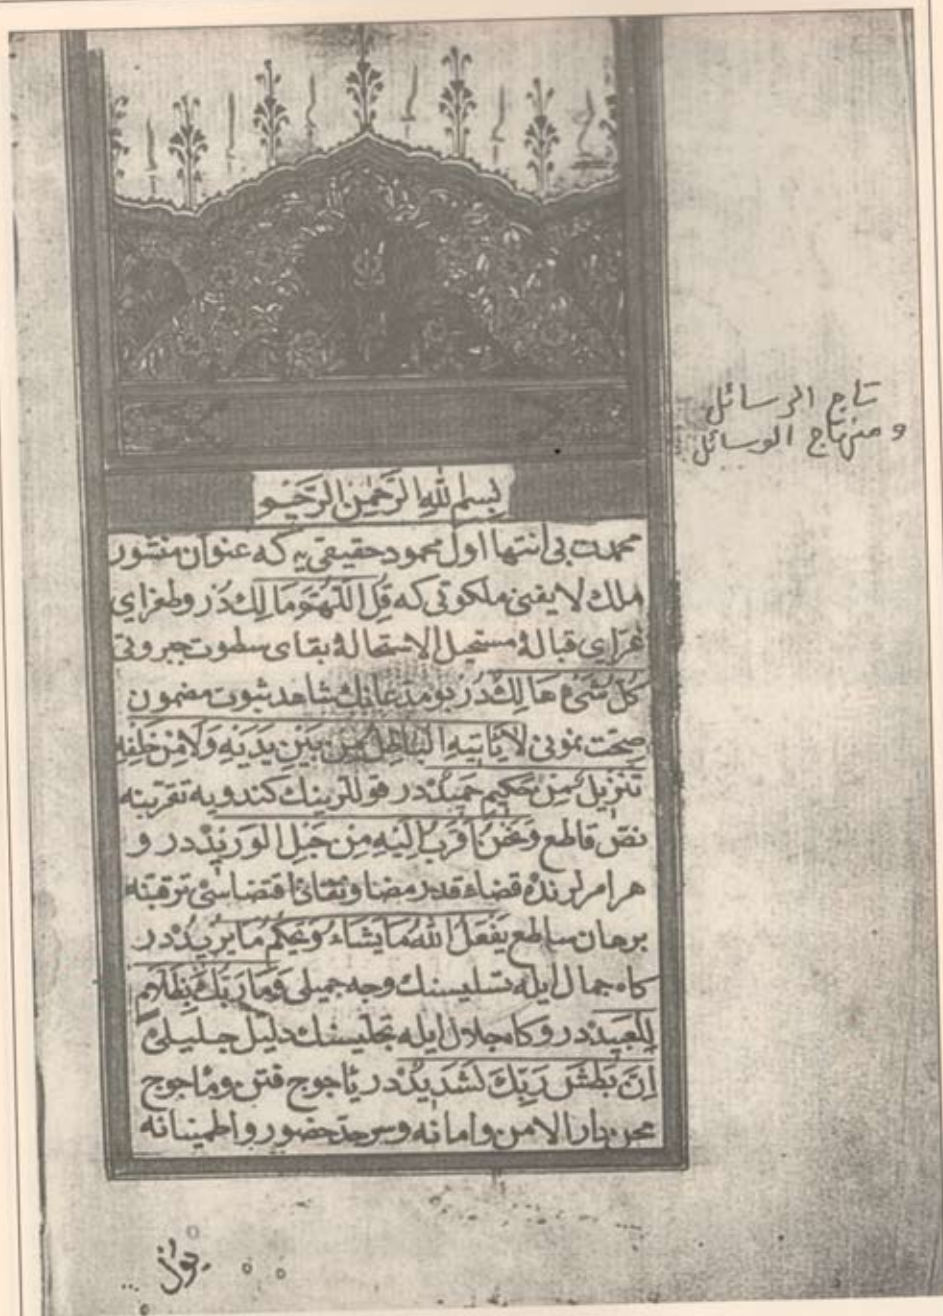 تاج الرسائل
و منهاج الوسائل
بِسْمِ اللهِ الرَّحْمٰنِ الرَّحِيمِ
محمدت بی انتها اول محمود حقیقی یه که عنوان منشور
ملك لا یفنی ملکوتی که قُلِ اللّٰهُمَّ مَالِكَ دُر و طغرای
غرّای قبالۀ مستحیل الاستحالۀ بقای سطوت جبروتی
كُلُّ شَیْءٍ هَالِكٌ دُر بو مدعانك شاهد ثبوت مضمون
صحّت نمونی لَا یَأْتِیهِ الْبَاطِلُ مِنْ بَیْنِ یَدَیْهِ وَلَا مِنْ خَلْفِهِ
تَنْزِیلٌ مِنْ حَكِیمٍ حَمِیدٍ در قوللرینك کندویه تقرّبنه
نصّ قاطع وَنَحْنُ اَقْرَبُ اِلَیْهِ مِنْ حَبْلِ الْوَرِیدِ در و
هر امرلرنده قضاء قدر مضا و اقتضاسی ترقبنه
برهان ساطع یَفْعَلُ اللّٰهُ مَا یَشَاءُ وَیَحْكُمُ مَا یُرِیدُ در
کاه جمال ایله تسلیسنك وجه جمیلی وَمَا رَبُّكَ بِظَلَّامٍ
لِلْعَبِیدِ در و کاه جلال ایله تجلیسنك دلیل جلیلی
اِنَّ بَطْشَ رَبِّكَ لَشَدِیدٌ در یأجوج فتن و مأجوج
محن دار الامن و امانه و سرحد حضور و اطمینانه